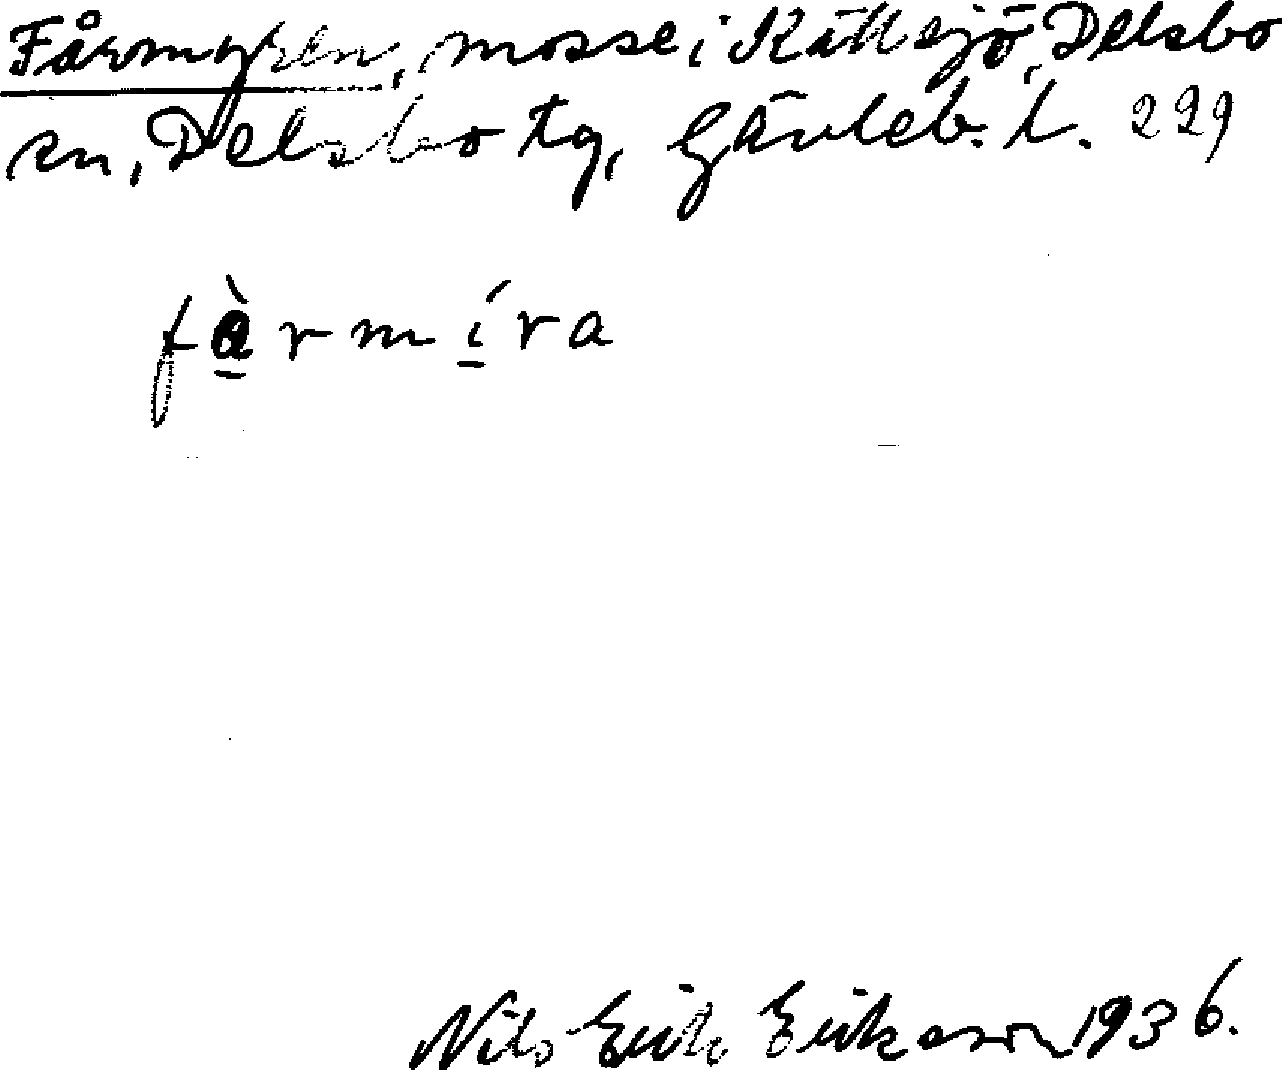 Fårmyren, mosse i Källsjö, Delsbo
sn, Delsbo tg, Gävleb. l. 229
fàrmíra
Nils Erik Erikson 1936.